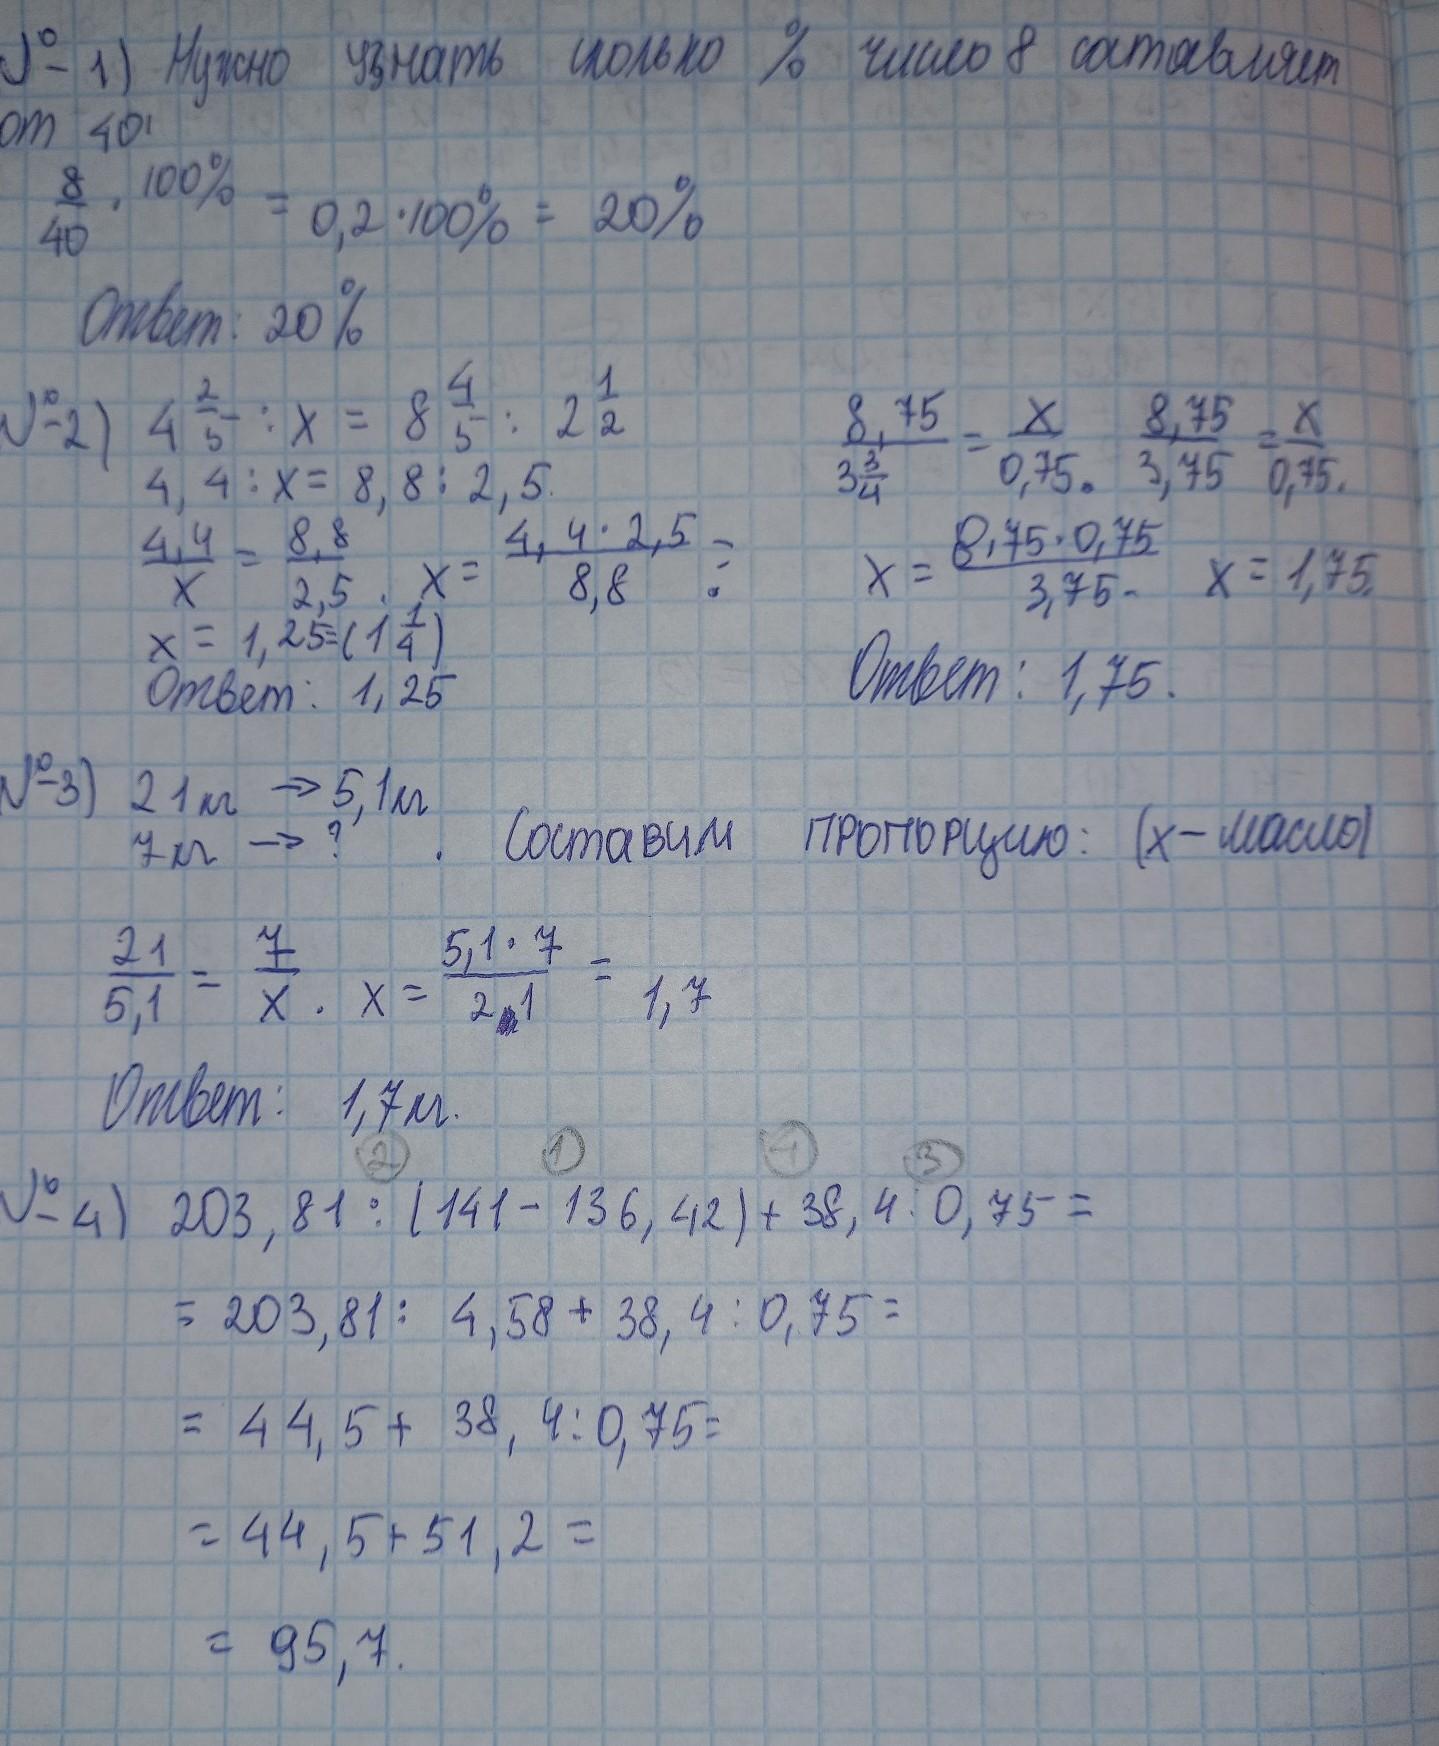 №1) Нужно узнать сколько % число 8 составляет
от 40!
8/40 · 100% = 0,2 · 100% = 20%
Ответ: 20%
№2) 4 2/5 : x = 8 4/5 : 2 1/2
4,4 : x = 8,8 : 2,5.
4,4/x = 8,8/2,5. x = 4,4 · 2,5/8,8 =
x = 1,25 = (1 1/4)
Ответ: 1,25
8,75/3 3/4 = x/0,75. 8,75/3,75 = x/0,75.
x = 8,75 · 0,75/3,75. x = 1,75.
Ответ: 1,75.
№3) 21кг → 5,1кг
7кг → ? . Составим пропорцию: (x – масло)
21/5,1 = 7/x. x = 5,1 · 7/21 = 1,7
Ответ: 1,7кг.
2 1 4 3
№4) 203,81 : (141 - 136,42) + 38,4 : 0,75 =
= 203,81 : 4,58 + 38,4 : 0,75 =
= 44,5 + 38,4 : 0,75 =
= 44,5 + 51,2 =
= 95,7.